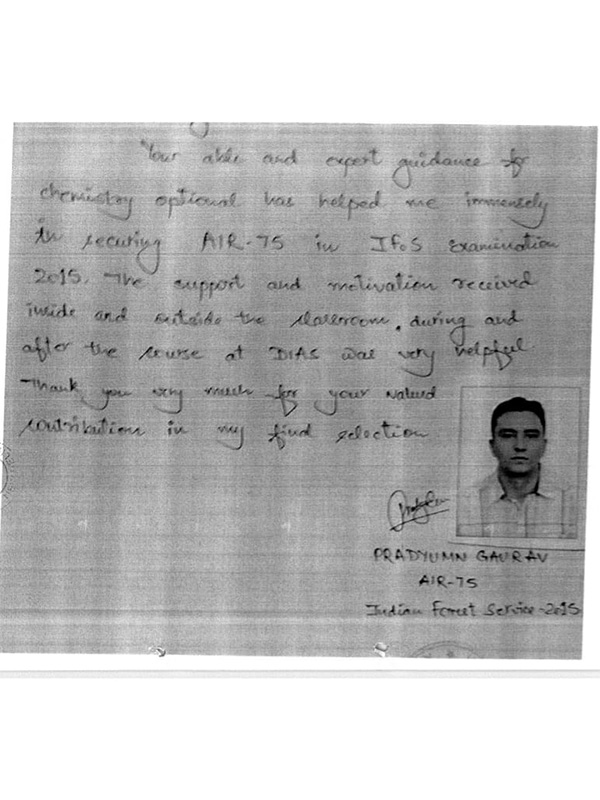 Your able and expert guidance for
chemistry optional has helped me immensely
in securing AIR-75 in IFoS Examination
2015. The support and motivation received
inside and outside the classroom, during and
after the course at DIAS was very helpful.
Thank you very much for your valued
contribution in my final selection
PRADYUMN GAURAV
AIR-75
Indian Forest Service-2015